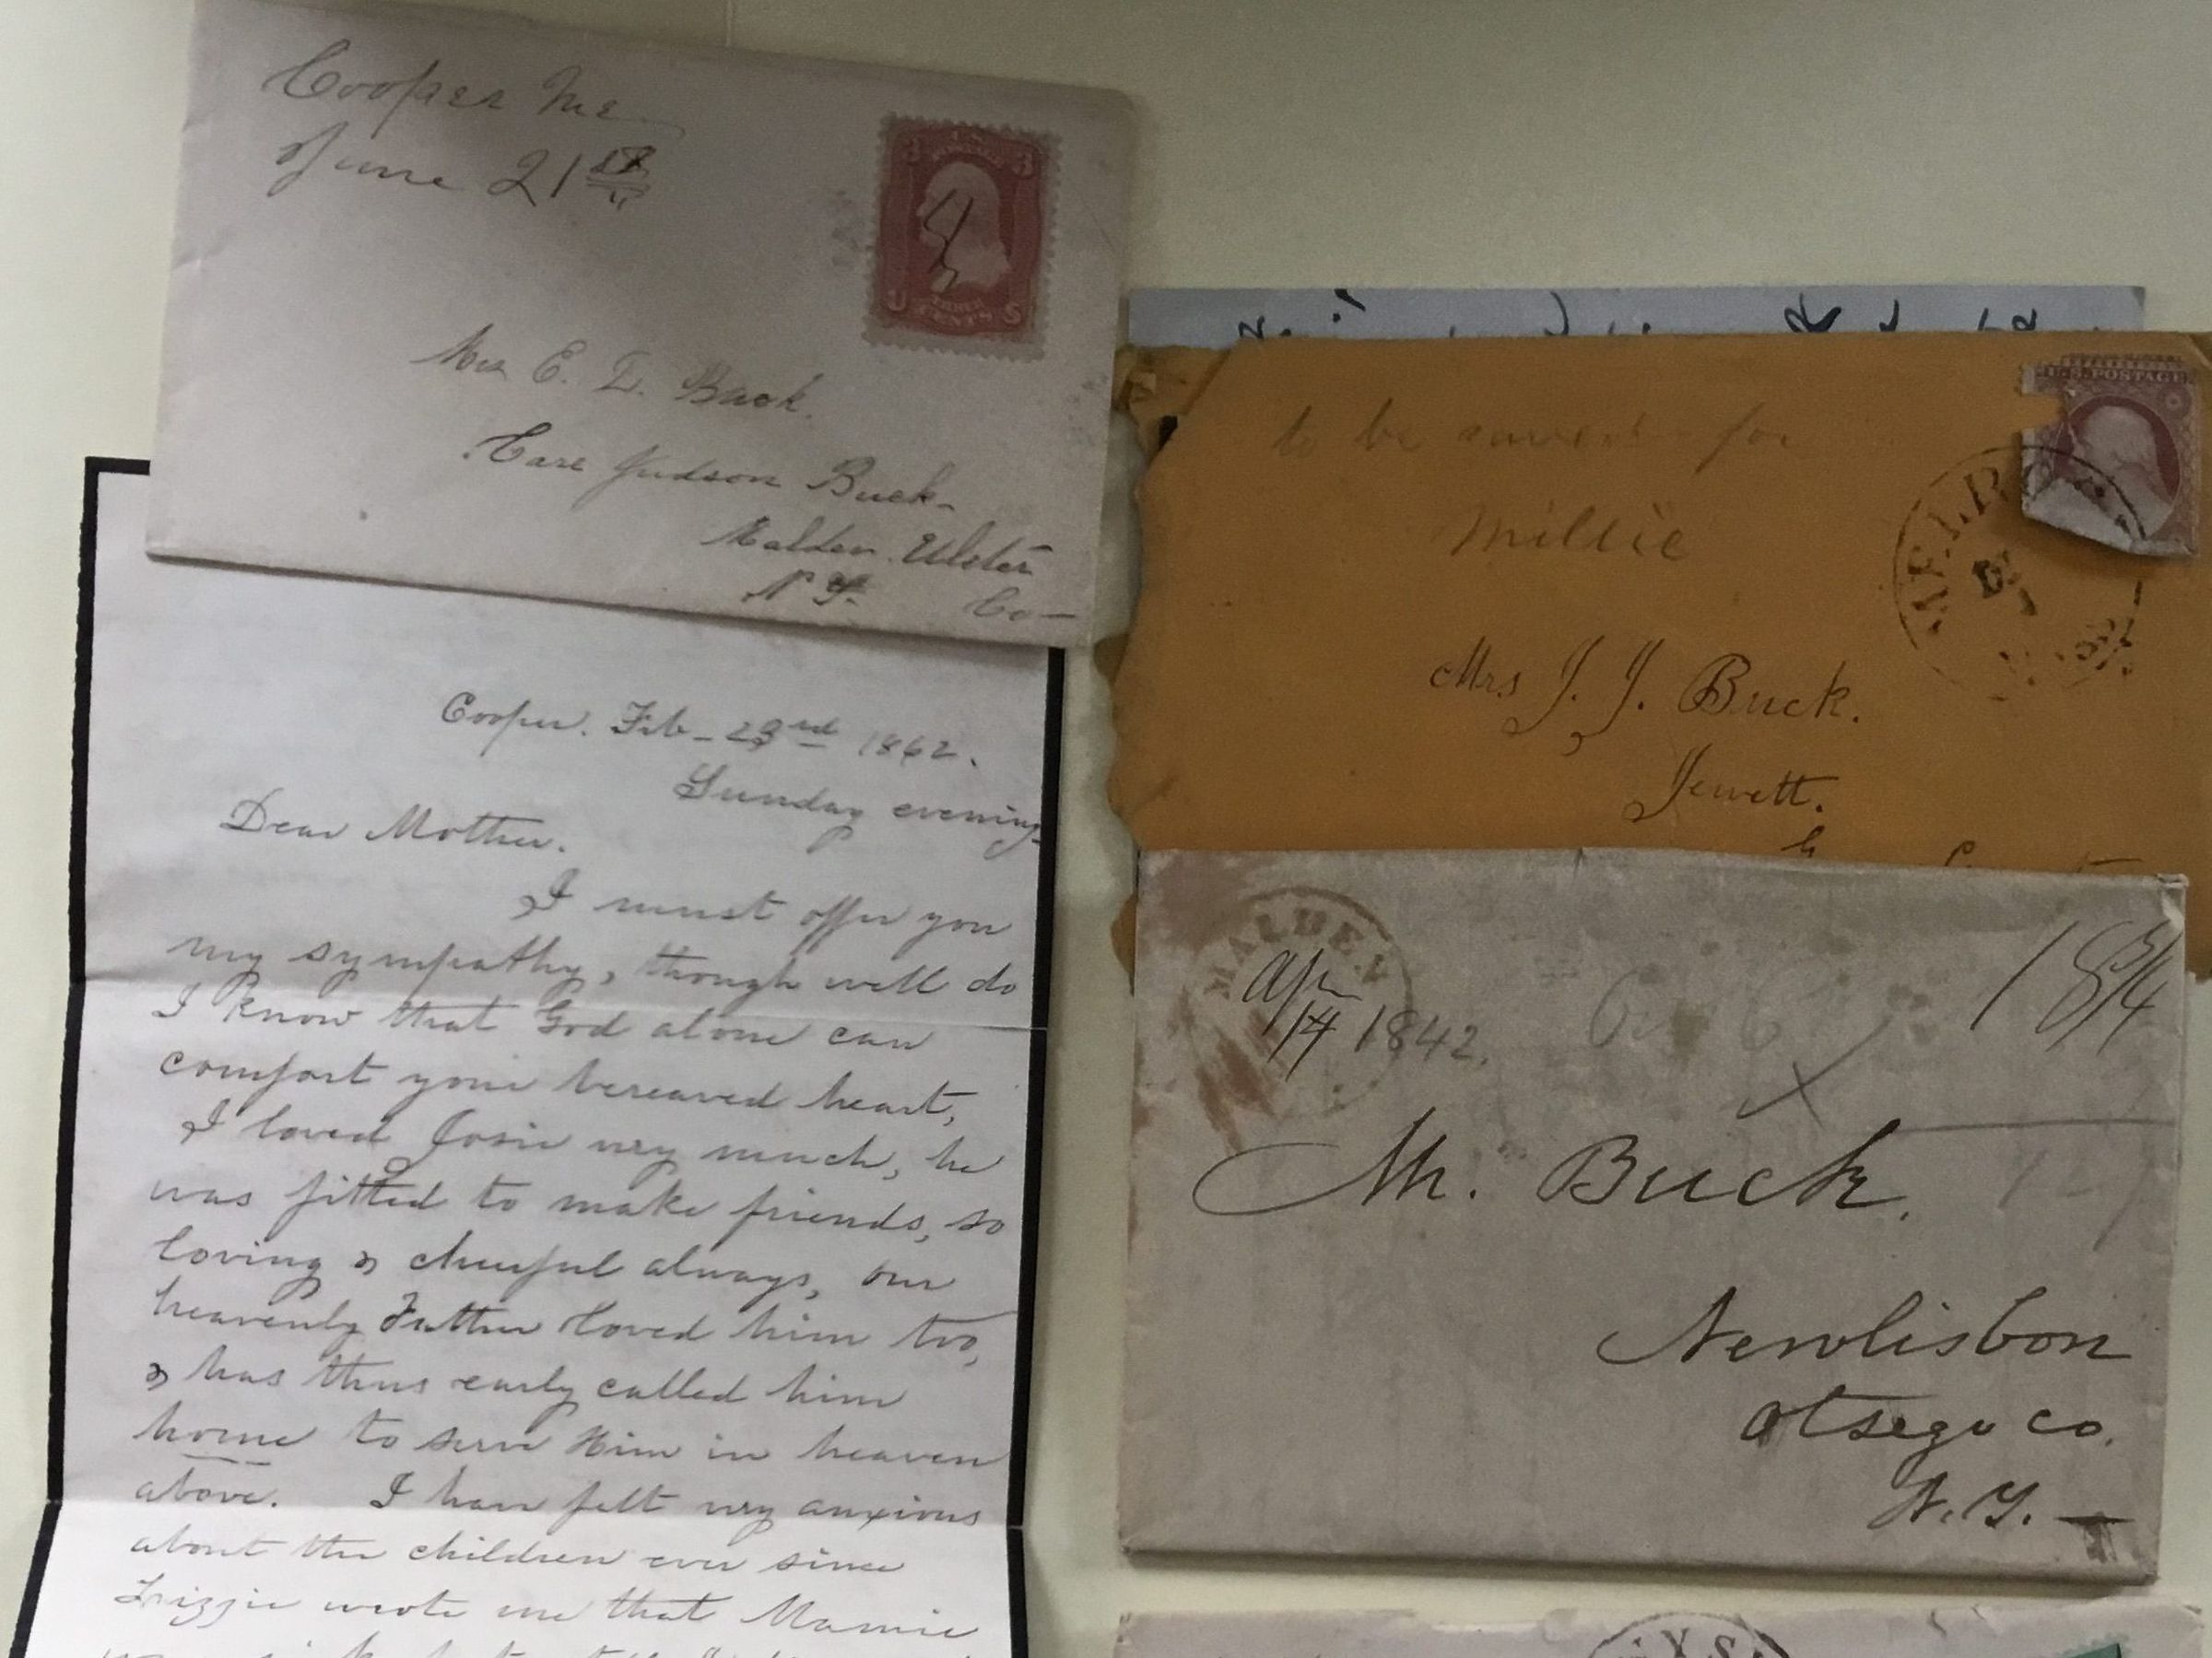 Cooper Me
June 21st
U.S. POSTAGE
3 3
THREE
CENTS
Mrs E. L. Buck.
Care Judson Buck-
Malden. Ulster
N Y. Co-
Cooper. Feb-23rd 1862.
Sunday evening-
Dear Mother.
I must offer you
my sympathy, though well do
I know that God alone can
comfort your bereaved heart,
I loved Josie very much, he
was fitted to make friends, so
loving & cheerful always, our
heavenly Father loved him too,
& has thus early called him
home to serve Him in heaven
above. I have felt very anxious
about the children ever since
Lizzie wrote me that Mamie
to be saved for
Millie
U.S. POSTAGE
Mrs J. J. Buck.
Jewett.
MALDEN
Apr
14 1842.
18 3/4
M. Buck.
Newlisbon
Otsego Co.
N.Y.